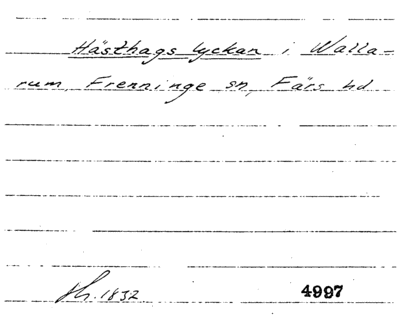 Hästhags lyckan i Walla=
rum, Frenninge sn, Färs hd
Hs. 1832
4997